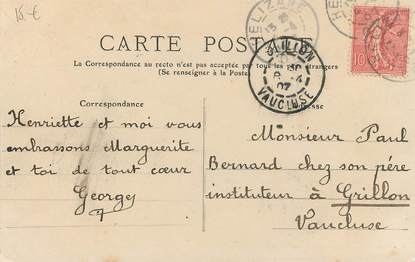 15.€
RELIZANE
CARTE POSTALE
La Correspondance au recto n'est pas acceptée par tous les pays étrangers
(Se renseigner à la Poste)
GRILLON
8 -4
07
VAUCLUSE
10
Correspondance
Adresse
Henriette et moi vous
embrassons Marguerite
et toi de tout cœur
Georges
Monsieur Paul
Bernard chez son père
instituteur à Grillon
Vaucluse